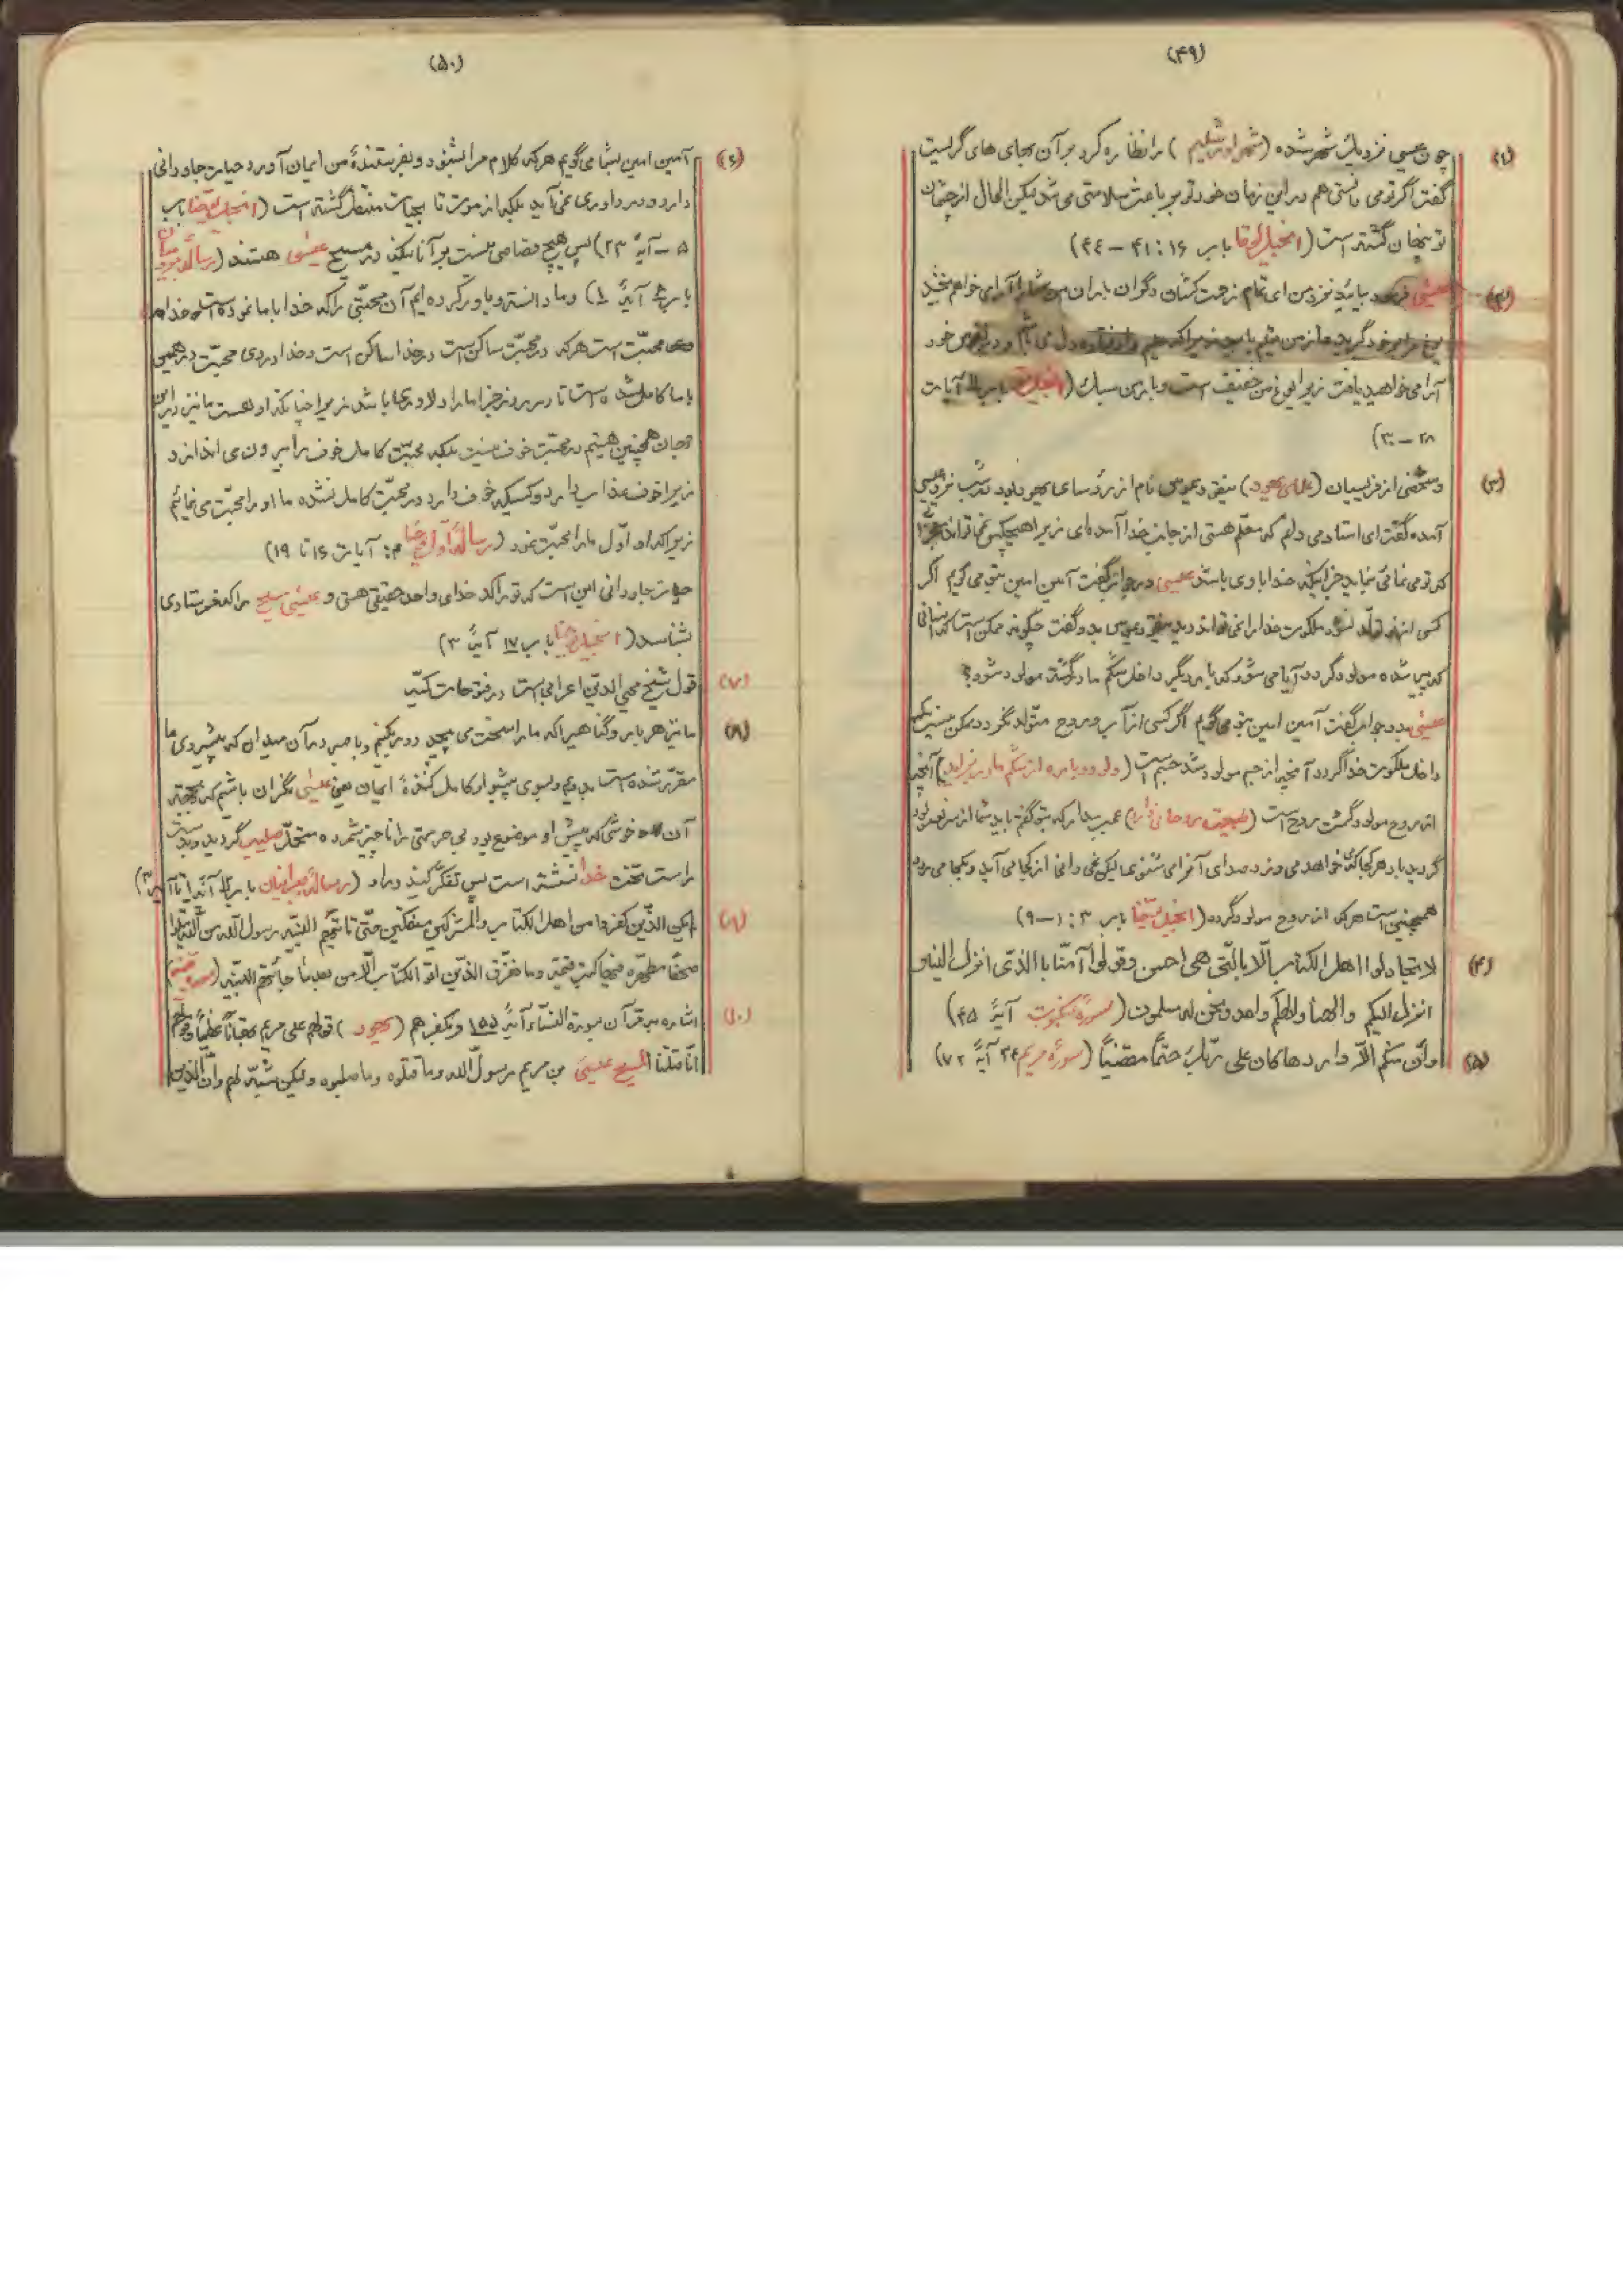 (۴۹)
(۱) چون عیسی نزدیک شهر شده (شهر اورشلیم) را نظاره کرد بر آن بهای های گریست
گفت اگر تو می دانستی هم در این زمان خود تو بر باعث سلامتی می شد لیکن الحال از چشمان
تو پنهان گشته است (انجیل لوقا باب ۱۶ : ۴۱ – ۴۴)
(۲) عیسی فرمود بیائید نزد من ای تمام زحمت کشان و گران باران من شما را آرامی خواهم بخشید
یوغ مرا بر خود گیرید و از من تعلیم یابید زیرا که حلیم و افتاده دل می باشم و در نفوس خود
آرامی خواهید یافت زیرا یوغ من خفیف است و بار من سبک (انجیل متی باب ۱۱ آیات
۲۸ – ۳۰)
(۳) و شخصی از فریسیان (علمای یهود) نیقودیموس نام از رؤسای یهود بود در شب نزد عیسی
آمده گفت ای استاد می دانم که معلم هستی از جانب خدا آمده ای زیرا هیچکس نمی تواند معجزاتی
که تو می نمائی نماید جز اینکه خدا با وی باشد عیسی در جواب گفت آمین امین بتو می گویم اگر
کسی از نو تولد نشود ملکوت خدا را نمی تواند دید نیقودیموس بدو گفت چگونه ممکن است که انسانی
که پیر شده مولود گردد آیا می شود که بار دیگر داخل شکم مادر گشته مولود شود؟
عیسی بدو جواب گفت آمین امین بتو می گویم اگر کسی از آب و روح متولد نگردد ممکن نیست که
داخل ملکوت خدا گردد آنچه از جسم مولود شد جسم است (ولو دوباره از شکم مادر بزاید) آنچه
از روح مولود گشت روح است (طبیعت روحانی دارد) عجب مدار که بتو گفتم باید شما از سر نو مولود
گردید باد هر کجا که خواهد می وزد و صدای آنرا می شنوی لیکن نمی دانی از کجا می آید و بکجا می رود
همچنین است هر که از روح مولود گردد (انجیل یوحنا باب ۳ : ۱ – ۹)
(۴) لا تجادلوا اهل الکتاب الّا بالّتی هی احسن و قولوا آمنّا باالذّی انزل الینا و
انزل الیکم و الهنا و الهکم واحد و نحن له مسلمون (سورهٔ عنکبوت آیهٔ ۴۵)
(۵) و اّن منکم الاّ واردها کان علی ربّک حتماً مقضیاً (سورهٔ مریم ۲۴ آیهٔ ۷۲)
(۵۰)
(۶) آمین امین بشما می گویم هر که کلام مرا بشنود و بفرستندهٔ من ایمان آورد حیات جاودانی
دارد و در داوری نمی آید بلکه از موت تا بحیات منتقل گشته است (انجیل یوحنا باب
۵ – آیهٔ ۲۳) پس هیچ قصاصی نیست بر آنانیکه در مسیح عیسی هستند (رساله رومیان
باب ۸ آیهٔ ۱) و ما دانسته و باور کرده ایم آن محبّتی را که خدا با ما نموده است خدا
محبّت است هر که در محبّت ساکن است در خدا ساکن است و خدا در وی محبّت در همین
با ما کامل شده است تا در روز جزا ما را دلاوری باشد زیرا چنانکه او هست ما نیز در این
جهان همچنین هستیم در محبّت خوف نیست بلکه محبّت کامل خوف را بیرون می اندازد
زیرا خوف عذاب دارد و کسیکه خوف دارد در محبّت کامل نشده ما او را محبّت می نمائیم
زیرا که او اوّل ما را محبّت نمود (رسالهٔ اوّل یوحنا ۴: آیات ۱۶ تا ۱۹)
حیات جاودانی این است که تو را که خدای واحد حقیقی هستی و عیسی مسیح را که فرستادی
بشناسد (انجیل یوحنا باب ۱۷ آیهٔ ۳)
(۷) قول شیخ محی الدین اعرابی است در فتوحات مکّیه
(۸) ما نیز هر بار و گناهیرا که ما را سخت می پیچد دور بکنیم و با صبر در آن میدان که پیشروی ما
مقرّر شده است بدویم و بسوی پیشوا و کامل کنندهٔ ایمان یعنی عیسی نگران باشیم که بجهة
آن خوشی که پیش او موضوع بود بی حرمتی را ناچیز شمرده متحمّل صلیب گردید و بدست
راست تخت خدا نشسته است پس تفکّر کنید در او (رسالهٔ عبرانیان باب ۱۲ آیهٔ ۱ تا آیه ۳)
(۸) لم یکن الذّین کفروا من اهل الکتاب و المشرکین منفکّین حتّی تأتیهم البیّنه رسول الله من الله یتلوا
صحفاً مطهّره فیها کتب قیّمه و ما تفرّق الذّین اوتوا الکتاب الّا من بعد ما جائتهم البیّنه (سوره بیّنه)
(۱۰) اشاره بر قرآن سورة النساء آیهٔ ۱۵۵ و بکفرهم (یهود) قولهم علی مریم بهتاناً عظیماً و قولهم
انّا قتلنا المسیح عیسی بن مریم رسول الله و ما قتلوه و ما صلبوه و لکن شبّه لهم و انّ الذین